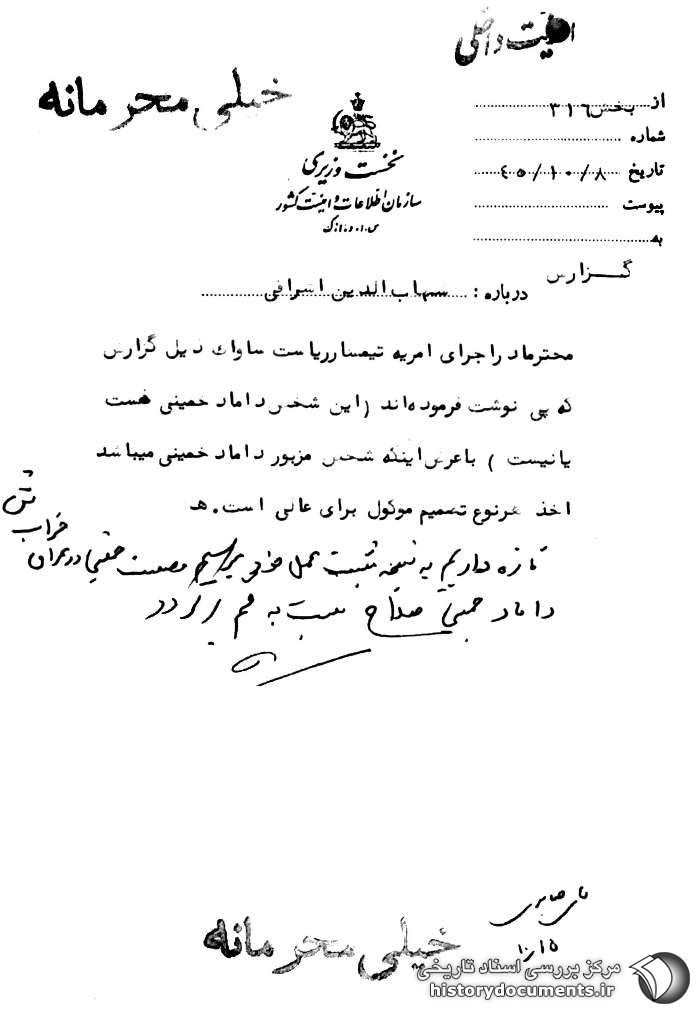 امنیت داخلی
خیلی محرمانه
از بخش ۳۱۶
شماره
تاریخ ۴۵/۱۰/۸
پیوست
به
نخست وزیری
سازمان اطلاعات و امنیت کشور
س.ا.و.ا.ک
گزارش
درباره: شهاب الدین اشراقی
محترما در اجرای امریه تیمسار ریاست ساواک ذیل گزارش
که پی نوشت فرموده‌اند (این شخص داماد خمینی هست
یا نیست ) با عرض اینکه شخص مزبور داماد خمینی میباشد
اخذ هرنوع تصمیم موکول برای عالی است. هـ
تازه داریم به نتیجه مثبت عمل خود میرسیم در تهران
داماد خمینی صلاح نیست به قم برگردد
آقای صابری
۱۰/۱۵
خیلی محرمانه
مرکز بررسی اسناد تاریخی
historydocuments.ir